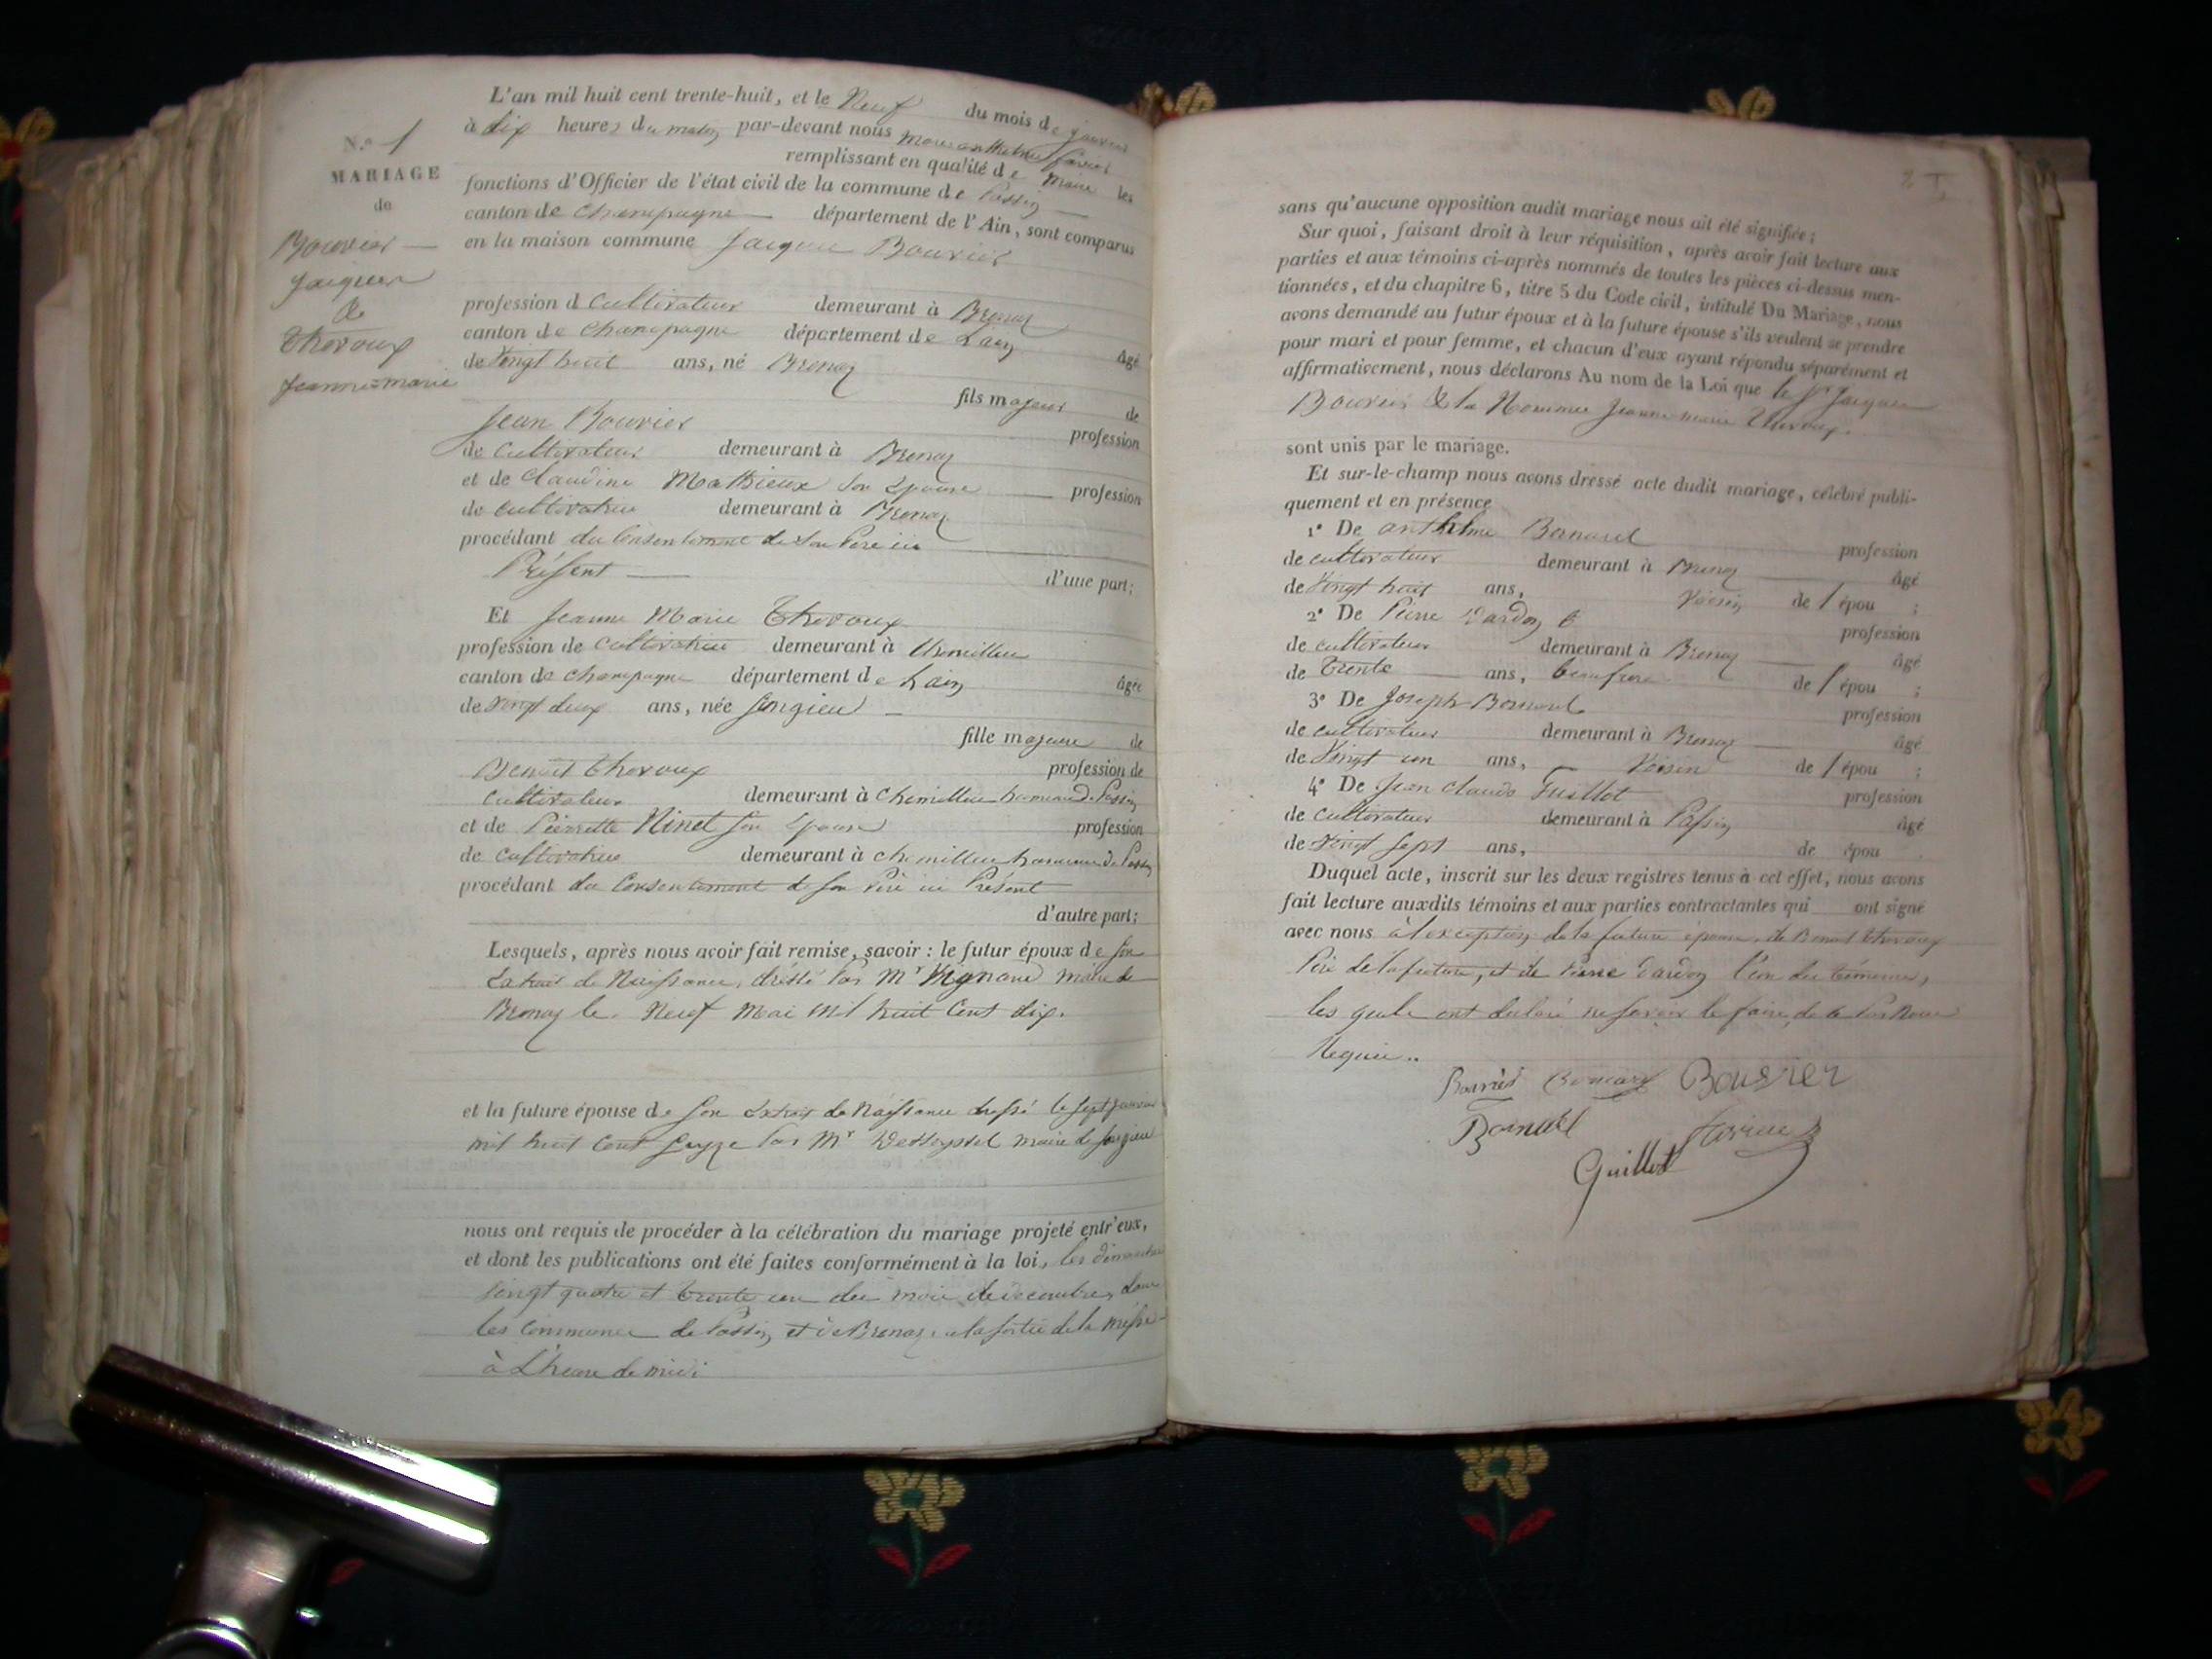 N.° 1
MARIAGE
de
Bouvier
Jacques
&
Thovoux
Jeanne-marie
L'an mil huit cent trente-huit, et le Neuf du mois de janvier
à dix heures du matin par-devant nous
remplissant en qualité de Maire les
fonctions d'Officier de l'état civil de la commune de Passin
canton de Champagne département de l'Ain, sont comparus
en la maison commune Jacques Bouvier
profession d cultivateur demeurant à Brenaz
canton de Champagne département de Lain âgé
de Vingt huit ans, né Brenaz
fils majeur de
Jean Bouvier profession
de Cultivateur demeurant à Brenaz
et de Claudine Mathieux son Epouse profession
de cultivatrice demeurant à Brenaz
procédant du Consentement de son Père ici
Présent d'une part;
Et Jeanne Marie Thovoux
profession de cultivatrice demeurant à Chemillieu
canton de Champagne département de Lain âgée
de Vingt deux ans, née Songieu
fille majeure de
Benoit Thovoux profession de
Cultivateur demeurant à Chemillieu hameau de Passin
et de Pierrette Ninet son Epouse profession
de cultivatrice demeurant à chemillieu hameau de Passin
procédant du Consentement de son Père ici Présent
d'autre part;
Lesquels, après nous avoir fait remise, savoir : le futur époux de son
Extrait de Naissance, dréssé Par Mr Mignand maire de
Brenaz le Neuf Mai Mil huit Cent dix.
et la future épouse de son Extrait de Naissance dressé le sept janvier
mil huit Cent Seize Par Mr maire de Songieu
nous ont requis de procéder à la célébration du mariage projeté entr'eux,
et dont les publications ont été faites conformément à la loi, les dimanches
Vingt quatre et trente un du mois de decembre, dans
les Communes de Passin et de Brenaz, a la sortie de la Messe
à L'heure de midi
2
sans qu'aucune opposition audit mariage nous ait été signifiée;
Sur quoi, faisant droit à leur réquisition, après avoir fait lecture aux
parties et aux témoins ci-après nommés de toutes les pièces ci-dessus men-
tionnées, et du chapitre 6, titre 5 du Code civil, intitulé Du Mariage, nous
avons demandé au futur époux et à la future épouse s'ils veulent se prendre
pour mari et pour femme, et chacun d'eux ayant répondu séparément et
affirmativement, nous déclarons Au nom de la Loi que le Sr Jacques
Bouvier & la Nommée Jeanne marie Thovoux.
sont unis par le mariage.
Et sur-le-champ nous avons dressé acte dudit mariage, célébré publi-
quement et en présence
1° De anthelme Bornard profession
de cultivateur demeurant à Brenaz âgé
de Vingt huit ans, Voisin de l épou ;
2° De Pierre Dardon profession
de cultivateur demeurant à Brenaz âgé
de trente ans, beaufrere de l épou ;
3° De Joseph Bornard profession
de cultivateur demeurant à Brenaz âgé
de Vingt un ans, Voisin de l épou ;
4° De Jean Claude Guillot profession
de cultivateur demeurant à Passin âgé
de Vingt Sept ans, de épou
Duquel acte, inscrit sur les deux registres tenus à cet effet, nous avons
fait lecture auxdits témoins et aux parties contractantes qui ont signé
avec nous à l'exception de la future épouse, de Benoit Thovoux
Père de la future, et de Pierre Dardon l'un des témoins,
les quels ont declaré ne savoir le faire, de ce Par Nous
Requis..
Bouvier Bouvier
Bornard
Guillot